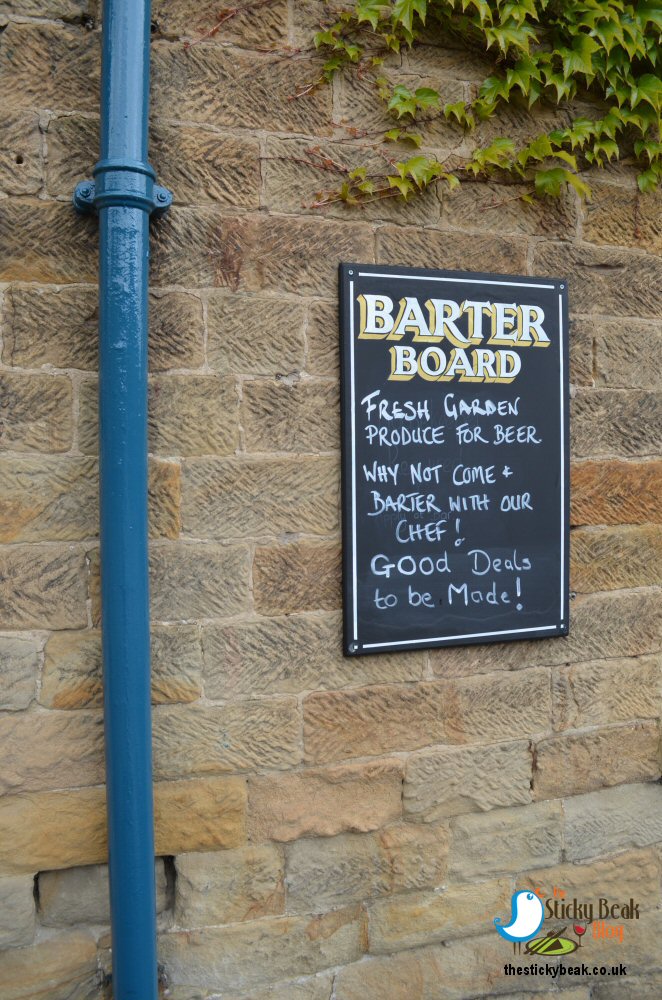 BARTER
BOARD
FRESH GARDEN
PRODUCE FOR BEER
WHY NOT COME +
BARTER WITH OUR
CHEF!
GOOD Deals
to be Made!
The
Sticky Beak
Blog
thestickybeak.co.uk